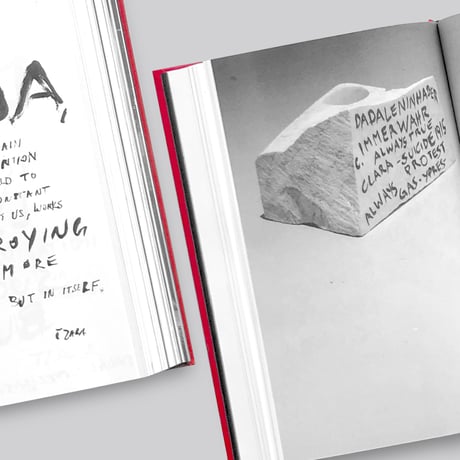 DA,
AIN
NTION
LD TO
ONSTANT
T US, WORKS
ROYING
MORE
BUT IN ITSELF.
TZARA
DADALENINHABER
C. IMMERWAHR
ALWAYS TRUE
CLARA - SUICIDE IS
ALWAYS PROTEST
GAS - YPRES